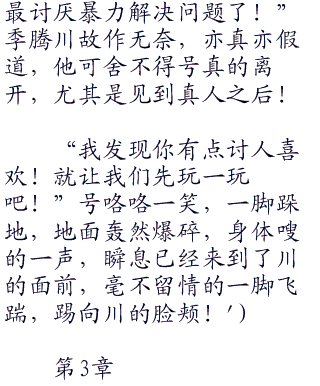 最讨厌暴力解决问题了！”
季腾川故作无奈，亦真亦假
道，他可舍不得号真的离
开，尤其是见到真人之后！
“我发现你有点讨人喜
欢！就让我们先玩一玩
吧！”号咯咯一笑，一脚跺
地，地面轰然爆碎，身体嗖
的一声，瞬息已经来到了川
的面前，毫不留情的一脚飞
踹，踢向川的脸颊！')
第3章